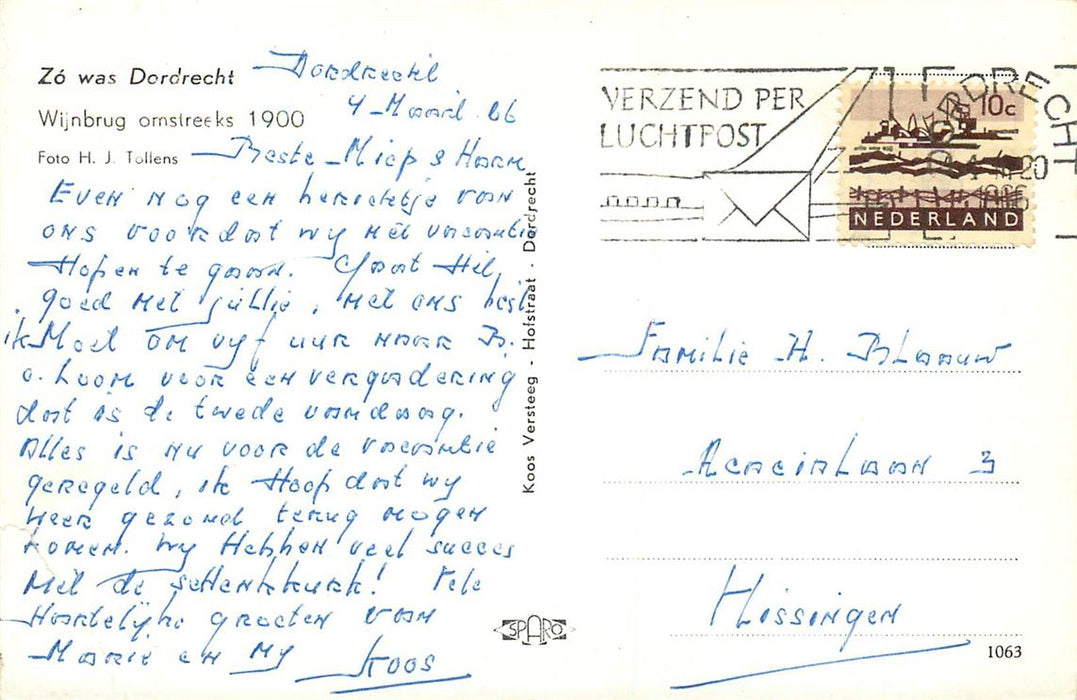 Zó was Dordrecht
Wijnbrug omstreeks 1900
Foto H. J. Tollens
Dordrecht
4 Maart 66
Beste Miep & Harm
Even nog een berichtje van
ons voordat wy met vacantie
Hopen te gaan. Gaat Hel,
goed met jullie, met ons best
ik Moet om vyf uur naar B.
a. Loom voor een vergadering
dat is de twede vandaag.
Alles is nu voor de vacantie
geregeld, ik Hoop dat wy
weer gezond terug mogen
komen. Wy Hebben veel succes
Met de schenkkurk! Vele
Hartelyke groeten van
Marie en My Koos
Koos Versteeg - Hofstraat - Dordrecht
SPARO
VERZEND PER
LUCHTPOST
DORDRECHT
1966
10c
NEDERLAND
Familie H. Blaauw
Acacialaan 3
Vlissingen
1063